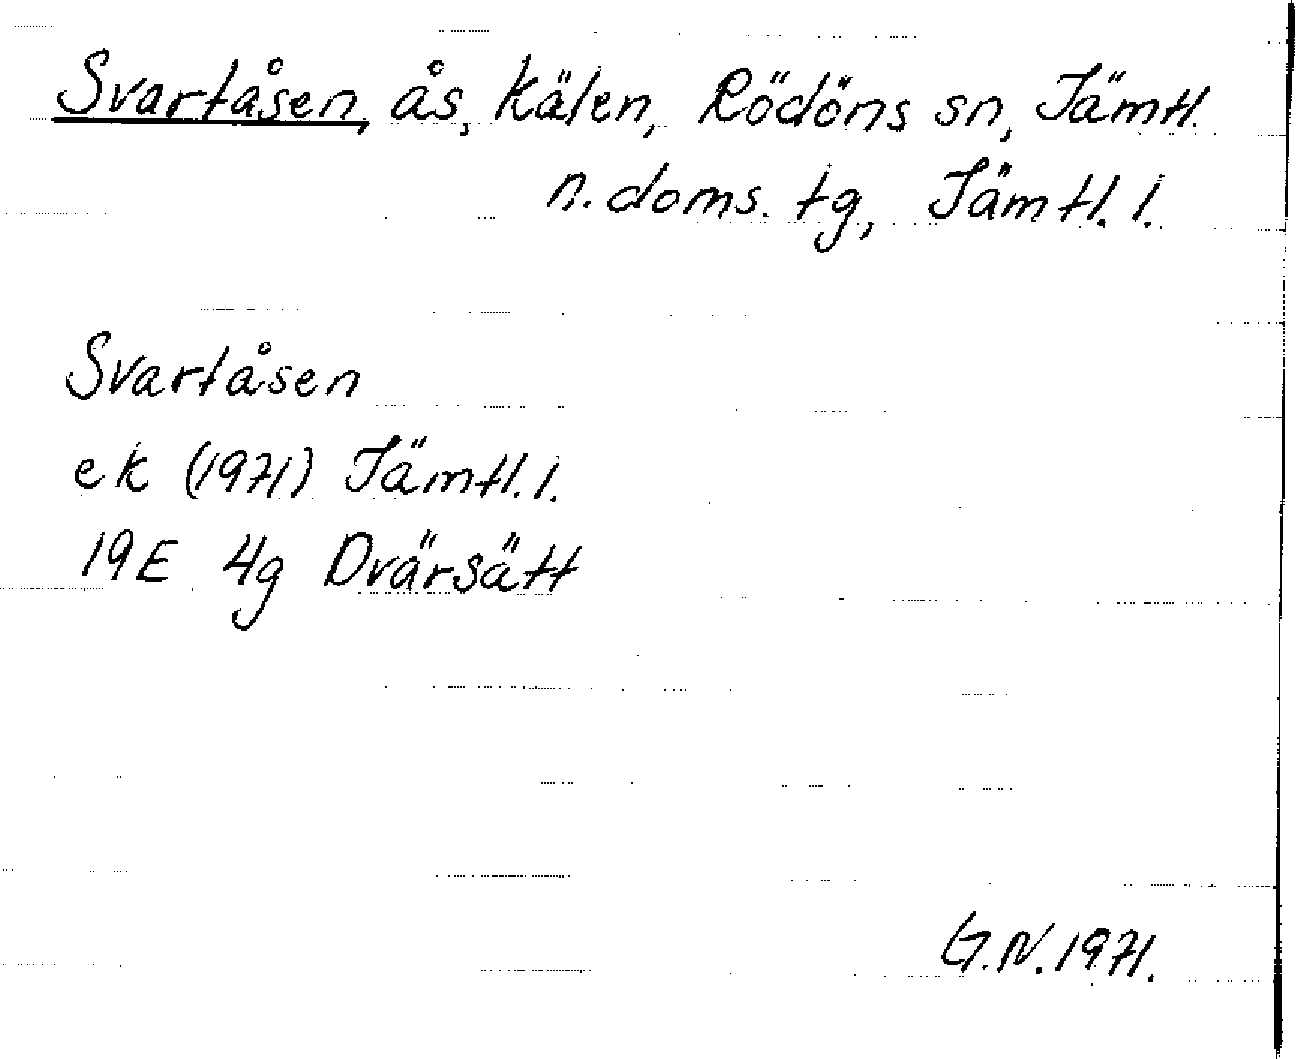 Svartåsen, ås, Kälen, Rödöns sn, Jämtl.
n. doms. tg, Jämtl. l.
Svartåsen
ek (1971) Jämtl. l.
19E 4g Dvärsätt
G.N. 1971.